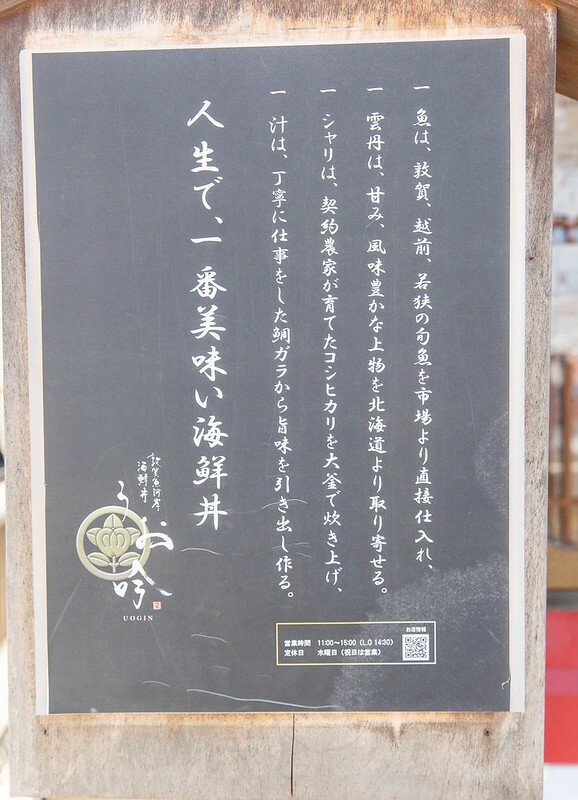 一 魚は、敦賀、越前、若狭の旬魚を市場より直接仕入れ、
一 雲丹は、甘み、風味豊かな上物を北海道より取り寄せる。
一 シャリは、契約農家が育てたコシヒカリを大釜で炊き上げ、
一 汁は、丁寧に仕事をした鯛ガラから旨味を引き出し作る。
人生で、一番美味い海鮮丼
敦賀魚河岸
海鮮丼
うお吟
UOGIN
お店情報
営業時間 11:00〜15:00（L.O 14:30）
定休日 水曜日（祝日は営業）